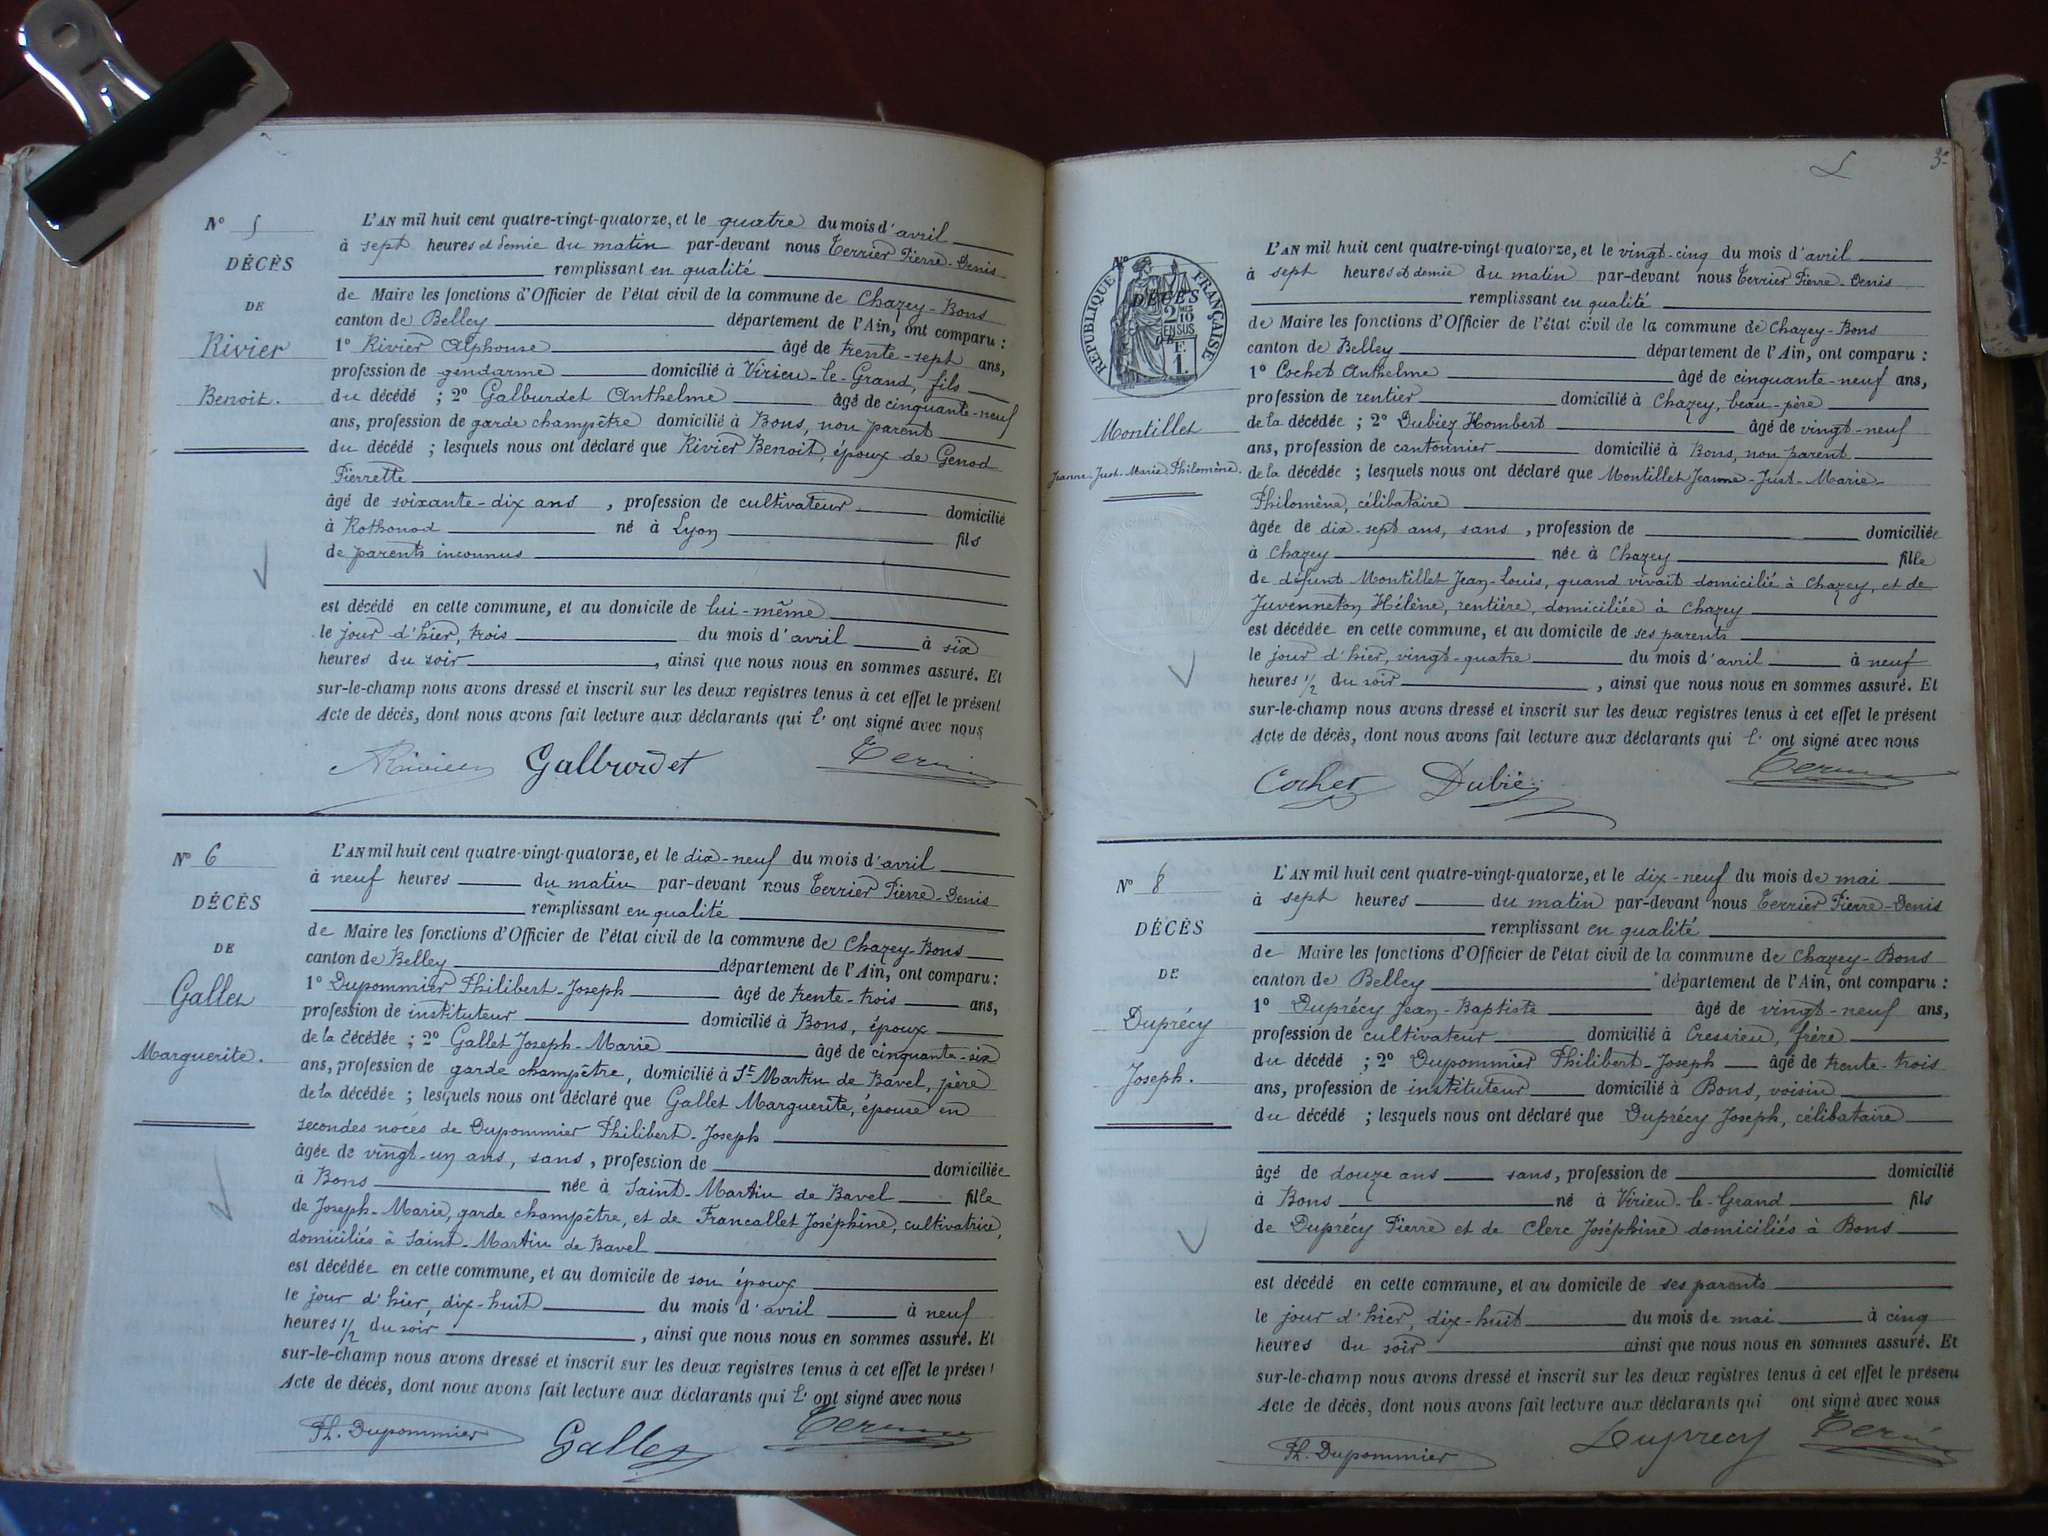 N° 5
DÉCÈS
DE
Rivier
Benoit.
L'AN mil huit cent quatre-vingt-quatorze, et le quatre du mois d'avril
à sept heures et demie du matin par-devant nous Terrier Pierre-Denis
remplissant en qualité
de Maire les fonctions d'Officier de l'état civil de la commune de Chazey-Bons
canton de Belley département de l'Ain, ont comparu :
1° Rivier Alphonse âgé de trente-sept ans,
profession de gendarme domicilié à Virieu-le-Grand, fils
du décédé ; 2° Galburdet Anthelme âgé de cinquante-neuf
ans, profession de garde champêtre domicilié à Bons, non parent
du décédé ; lesquels nous ont déclaré que Rivier Benoit, époux de Genod
Pierrette
âgé de soixante-dix ans , profession de cultivateur domicilié
à Rothonod né à Lyon fils
de parents inconnus
est décédé en cette commune, et au domicile de lui-même
le jour d'hier, trois du mois d'avril à six
heures du soir , ainsi que nous nous en sommes assuré. Et
sur-le-champ nous avons dressé et inscrit sur les deux registres tenus à cet effet le présent
Acte de décès, dont nous avons fait lecture aux déclarants qui l' ont signé avec nous
Galburdet
N° 6
DÉCÈS
DE
Gallet
Marguerite.
L'AN mil huit cent quatre-vingt-quatorze, et le dix-neuf du mois d'avril
à neuf heures du matin par-devant nous Terrier Pierre-Denis
remplissant en qualité
de Maire les fonctions d'Officier de l'état civil de la commune de Chazey-Bons
canton de Belley département de l'Ain, ont comparu :
1° Dupommier Philibert-Joseph âgé de trente-trois ans,
profession de instituteur domicilié à Bons, époux
de la décédée ; 2° Gallet Joseph-Marie âgé de cinquante-six
ans, profession de garde champêtre, domicilié à St Martin de Bavel, père
de la décédée ; lesquels nous ont déclaré que Gallet Marguerite, épouse en
secondes noces de Dupommier Philibert-Joseph
âgée de vingt-un ans, sans , profession de domiciliée
à Bons née à Saint-Martin de Bavel fille
de Joseph-Marie, garde champêtre, et de Francallet Joséphine, cultivatrice,
domiciliés à Saint-Martin de Bavel
est décédée en cette commune, et au domicile de son époux
le jour d'hier, dix-huit du mois d'avril à neuf
heures 1/2 du soir , ainsi que nous nous en sommes assuré. Et
sur-le-champ nous avons dressé et inscrit sur les deux registres tenus à cet effet le présent
Acte de décès, dont nous avons fait lecture aux déclarants qui l' ont signé avec nous
Ph. Dupommier Gallet
3e
RÉPUBLIQUE FRANÇAISE
N°
DÉCÈS
2 MES
10
EN SUS
DE
F.
1.
Montillet
Jeanne-Just-Marie-Philomène.
L'AN mil huit cent quatre-vingt-quatorze, et le vingt-cinq du mois d'avril
à sept heures et demie du matin par-devant nous Terrier Pierre-Denis
remplissant en qualité
de Maire les fonctions d'Officier de l'état civil de la commune de Chazey-Bons
canton de Belley département de l'Ain, ont comparu :
1° Cochet Anthelme âgé de cinquante-neuf ans,
profession de rentier domicilié à Chazey, beau-père
de la décédée ; 2° Dubiez Hombert âgé de vingt-neuf
ans, profession de cantonnier domicilié à Bons, non parent
de la décédée ; lesquels nous ont déclaré que Montillet Jeanne-Just-Marie-
Philomène, célibataire
âgée de dix-sept ans, sans , profession de domiciliée
à Chazey née à Chazey fille
de défunt Montillet Jean-Louis, quand vivait domicilié à Chazey, et de
Juvenneton Hélène, rentière, domiciliée à Chazey
est décédée en cette commune, et au domicile de ses parents
le jour d'hier, vingt-quatre du mois d'avril à neuf
heures 1/2 du soir , ainsi que nous nous en sommes assuré. Et
sur-le-champ nous avons dressé et inscrit sur les deux registres tenus à cet effet le présent
Acte de décès, dont nous avons fait lecture aux déclarants qui l' ont signé avec nous
Cochet Dubiez
N° 8
DÉCÈS
DE
Duprécy
Joseph.
L'AN mil huit cent quatre-vingt-quatorze, et le dix-neuf du mois de mai
à sept heures du matin par-devant nous Terrier Pierre-Denis
remplissant en qualité
de Maire les fonctions d'Officier de l'état civil de la commune de Chazey-Bons
canton de Belley département de l'Ain, ont comparu :
1° Duprécy Jean-Baptiste âgé de vingt-neuf ans,
profession de cultivateur domicilié à Cressieu, frère
du décédé ; 2° Dupommier Philibert-Joseph âgé de trente-trois
ans, profession de instituteur domicilié à Bons, voisin
du décédé ; lesquels nous ont déclaré que Duprécy Joseph, célibataire
âgé de douze ans sans, profession de domicilié
à Bons né à Virieu-le-Grand fils
de Duprécy Pierre et de Clerc Joséphine domiciliés à Bons
est décédé en cette commune, et au domicile de ses parents
le jour d'hier, dix-huit du mois de mai à cinq
heures du soir ainsi que nous nous en sommes assuré. Et
sur-le-champ nous avons dressé et inscrit sur les deux registres tenus à cet effet le présent
Acte de décès, dont nous avons fait lecture aux déclarants qui ont signé avec nous
Ph. Dupommier Duprécy